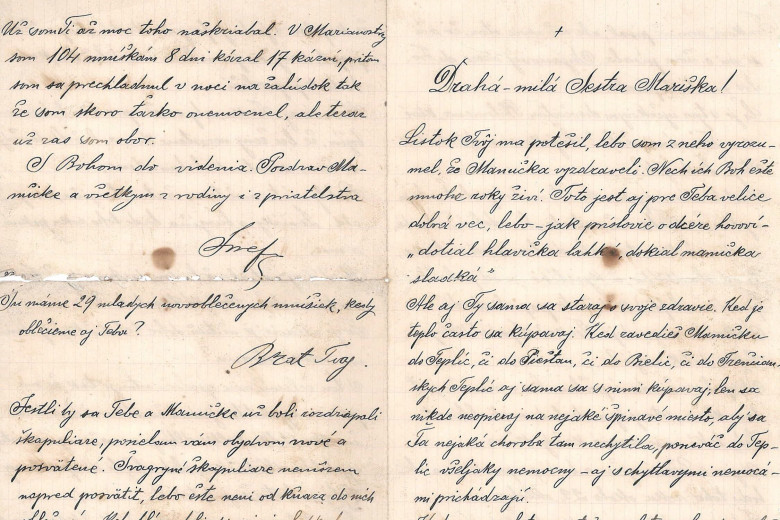 Už som Ti až moc toho naškriabal. V Marianostry
som 104 mníškám 8 dni kázal 17 kázní, pritom
som sa prechladnul v noci na žalúdok tak
že som skoro ťažko onemocnel, ale teraz
už zas som obor.
S Bohom do videnia. Pozdrav Ma-
mičke a všetkým z rodiny i z priatelstva
Jozef
Tu máme 29 mladých novooblečených mníšiek, kedy
oblečieme aj Teba?
Brat Tvoj.
Jestli by sa Tebe a Mamičke už boli rozdrapali
škapuliare, posielam vám obydvom nové a
posvätené. Ingryné škapuliare nemôžem
napred posvätiť, lebo ešte neni od kňaza do nich
+
Drahá - milá Sestra Mariška!
Lístok Tvôj ma potešil, lebo som z neho vyrozu-
mel, že Mamička vyzdraveli. Nech ich Boh ešte
mnoho roky živí. Toto jest aj pre Teba velice
dobrá vec, lebo - jak príslovie o dcére hovorí -
„dotiaľ hlavička lahká, dokial mamička
sladká"
Ale aj Ty sama sa staraj o svoje zdravie. Keď je
teplo často sa kúpavaj. Keď zavedieš Mamičku
do Teplíc, či do Piešťan, či do Bielic, či do Trenčian-
ských Teplíc aj sama sa s nimi kúpavaj, len sa
nikde neopieraj na nejaké špinavé miesto, aby sa
Ťa nejaká choroba tam nechytila, poneváč do Tep-
líc všeljaky nemocny - aj s chytlavymi nemocá-
mi prichádzajú.